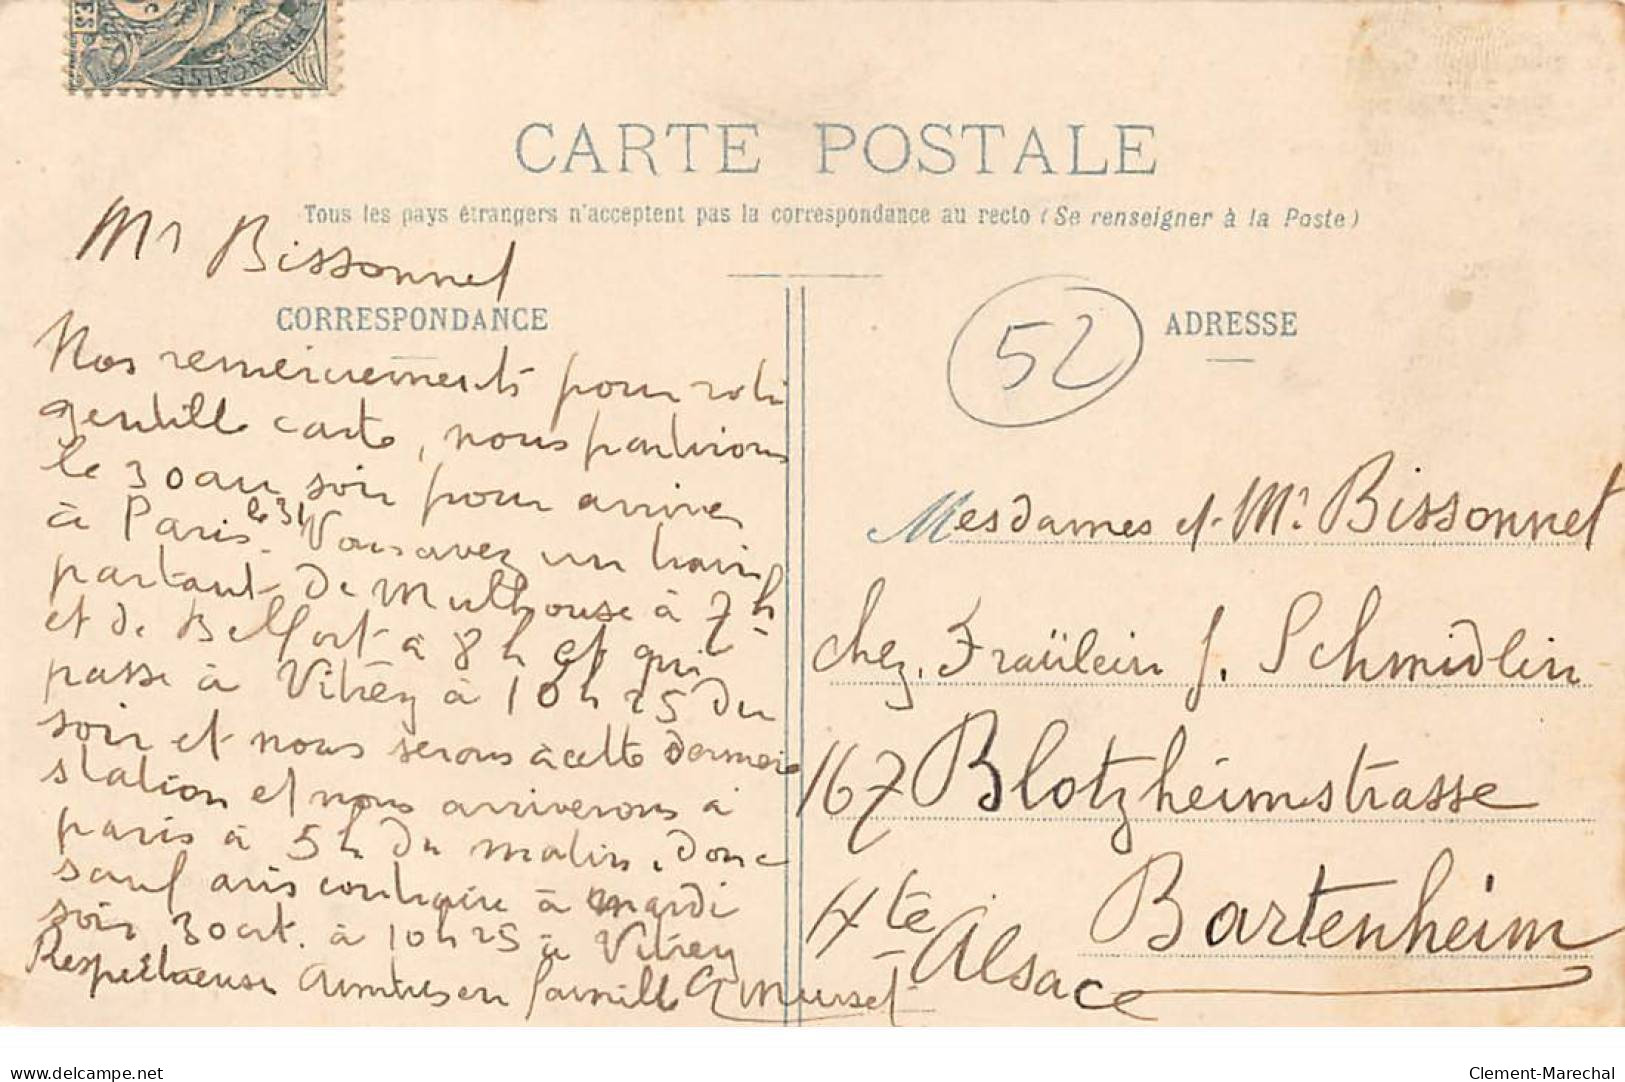 FRANÇAISE
CARTE POSTALE
Tous les pays étrangers n'acceptent pas la correspondance au recto (Se renseigner à la Poste)
Mr Bissonnet
CORRESPONDANCE
Nos remerciements pour votr
gentille carte, nous partirons
le 30 au soir pour arriver
à Paris le 31. Vous avez un train
partant de Mulhouse à 7h
et de Belfort à 8h et qui
passe à Vitrey à 10h25 du
soir et nous serons à cette dernière
station et nous arriverons à
paris à 5h du matin, donc
sauf avis contraire à mardi
soir 30 ort. à 10h25 à Vitrey
Respectueuses Amitiés en famille
52
ADRESSE
Mesdames et Mr Bissonnet
chez, Fraülein J. Schmidlin
167 Blotzheimstrasse
Bartenheim
Hte Alsace
www.delcampe.net
Clement-Marechal